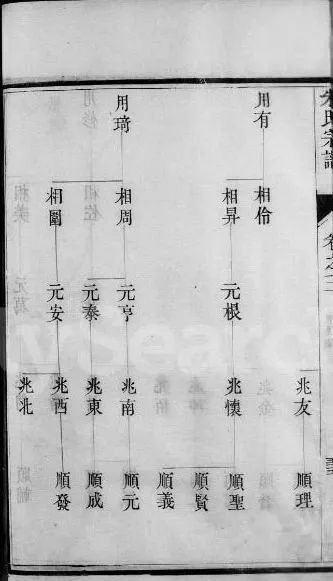 氏宗譜
卷之二
用有
用琦
相伶
相昇
相周
相圖
元根
元亨
元泰
元安
兆友
兆懷
兆南
兆東
兆西
兆北
順理
順聖
順賢
順義
順元
順成
順發